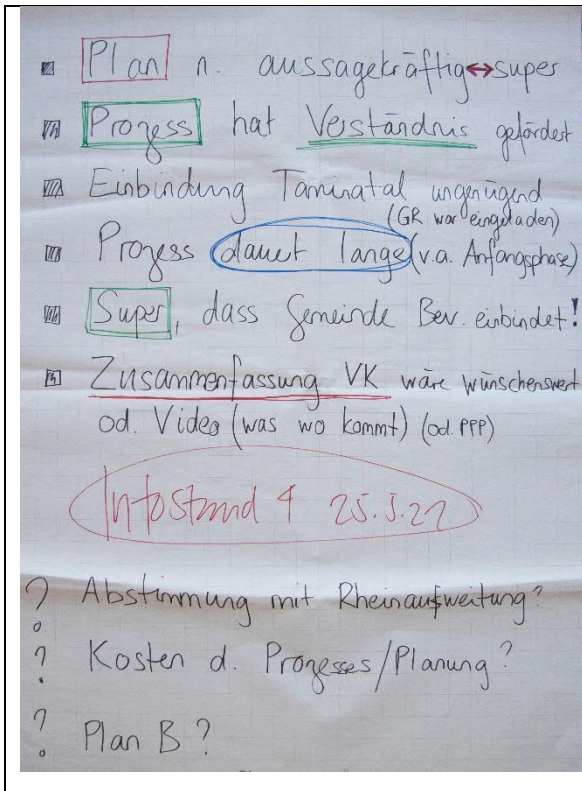 Plan n. aussagekräftig ↔ super
Prozess hat Verständnis gefördert
Einbindung Taminatal ungenügend
(GR war eingeladen)
Prozess dauert lange (v.a. Anfangsphase)
Super, dass Gemeinde Bev. einbindet!
Zusammenfassung VK wäre wünschenswert
od. Video (was wo kommt) (od. PPP)
Infostand 4 25.3.21
? Abstimmung mit Rheinaufweitung?
? Kosten d. Prozesses/Planung?
? Plan B?